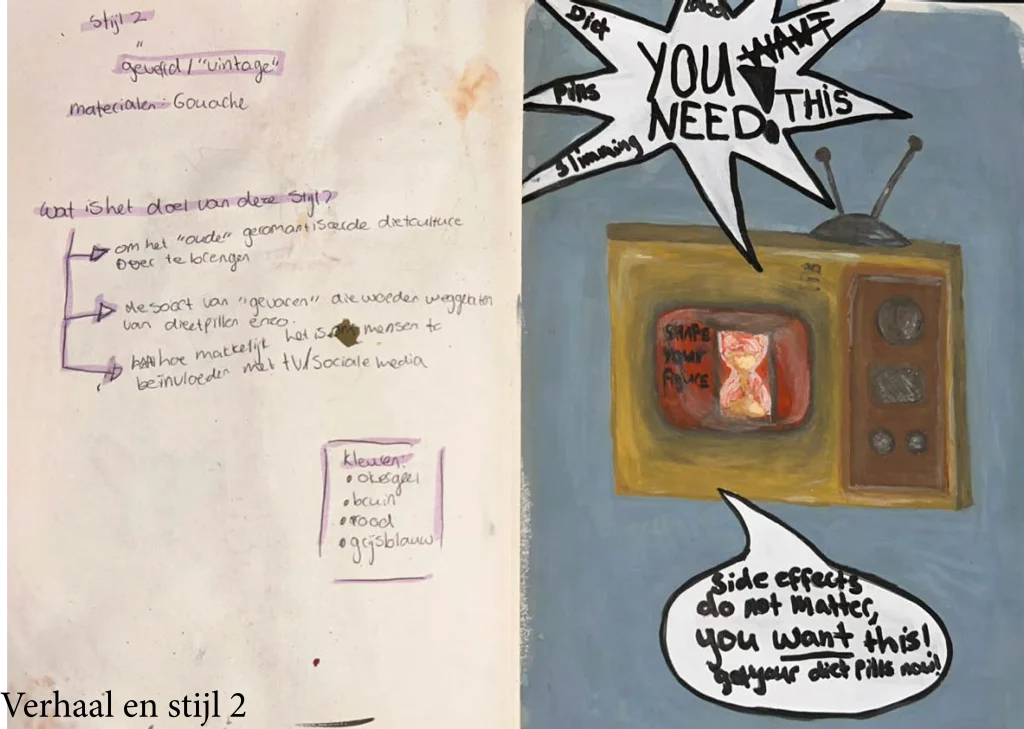 Stijl 2
geverfd / "vintage"
materialen: Gouache
Wat is het doel van deze Stijl?
om het "oude" geromantiseerde dietculture
over te brengen
"gevaren" die worden weggelaten
van dieetpillen enzo.
hoe makkelijk het is om mensen te
beïnvloeden met tv/Sociale media
Kleuren:
• okergeel
• bruin
• rood
• grijsblauw
Verhaal en stijl 2
Diet
Pills
Slimming
YOU WANT
NEED! THIS
SHAPE
Your
figure
Side effects
do not matter,
you want this!
get your diet pills now!